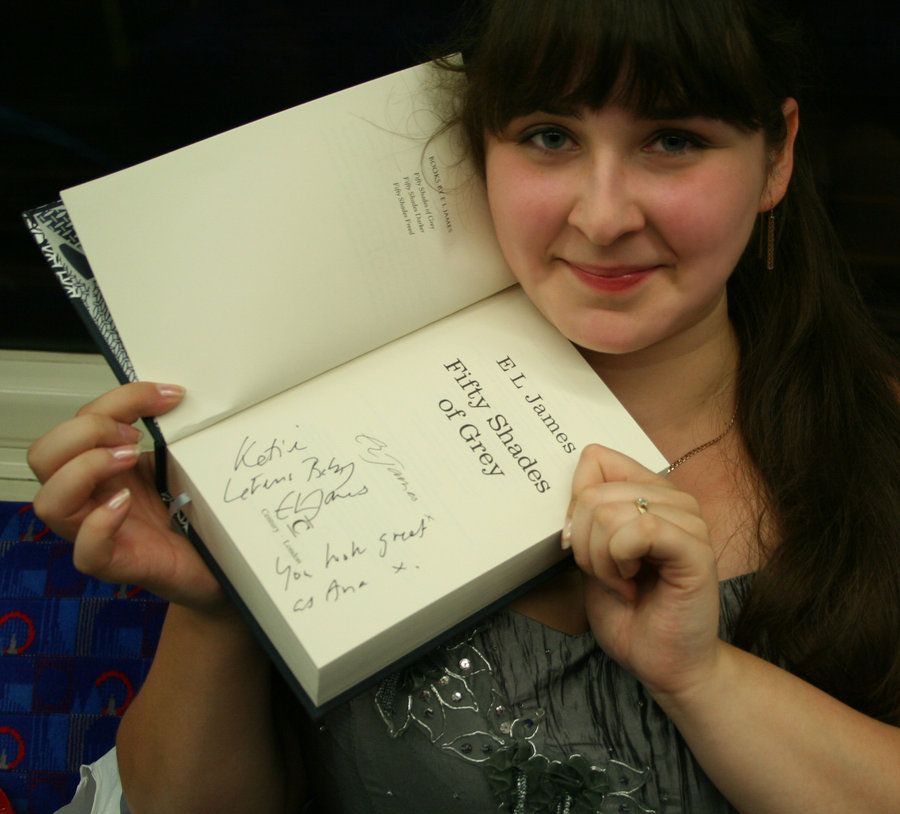 BOOKS BY E L JAMES
Fifty Shades of Grey
Fifty Shades Darker
Fifty Shades Freed
E L James
Fifty Shades
of Grey
Katie
Laters Baby
EL James
EL James x
Century · London
You look great
as Ana x.